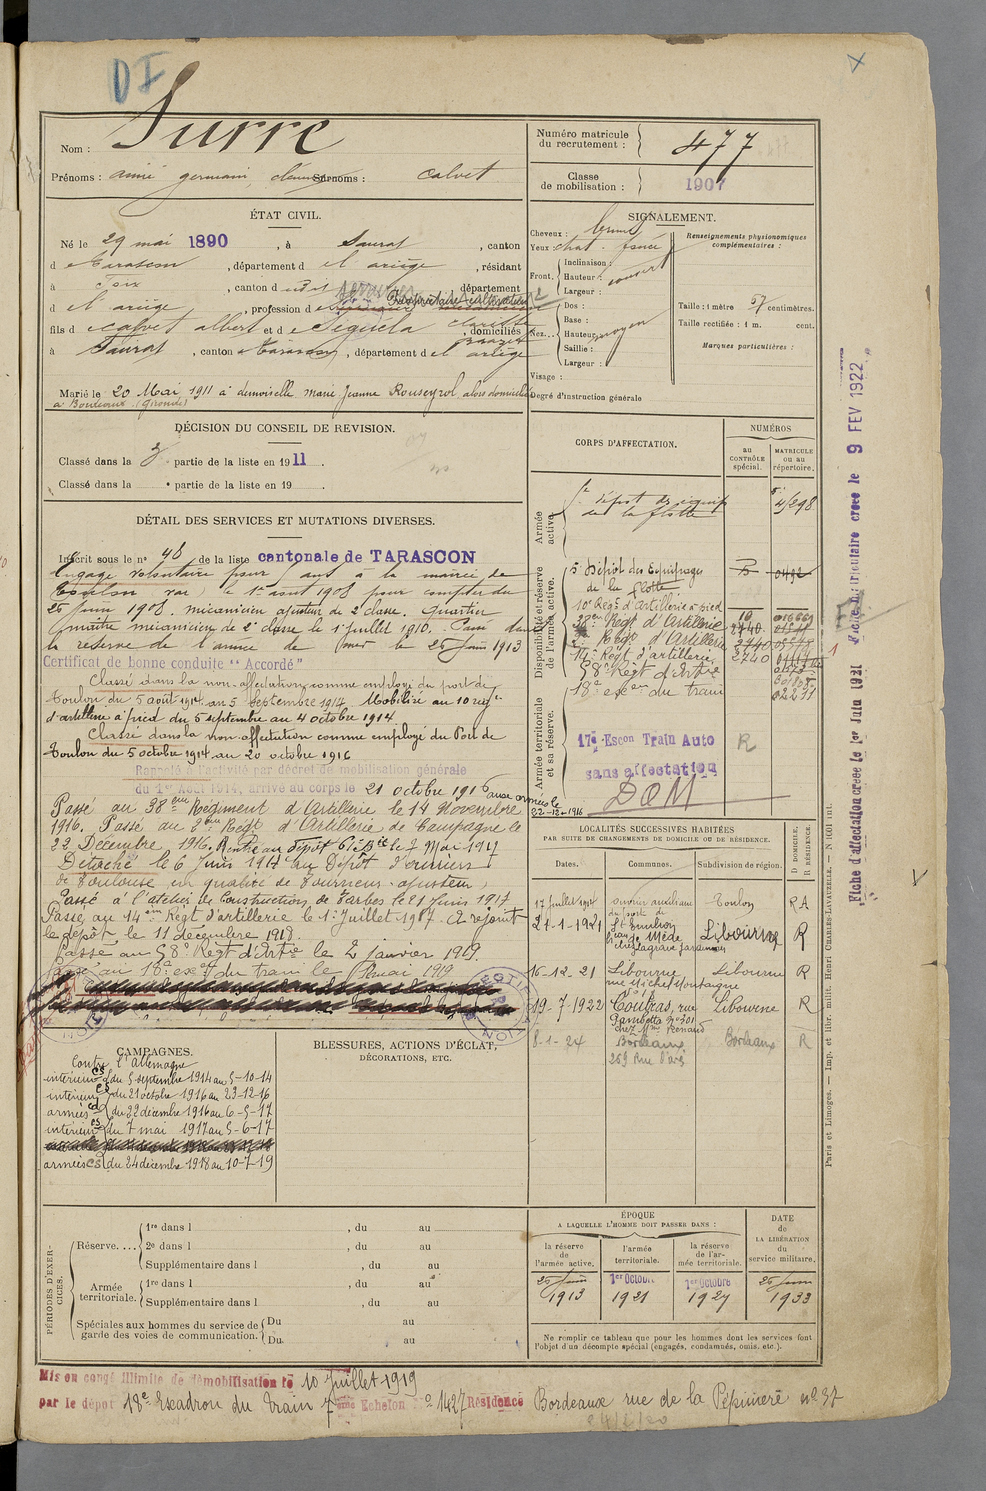 DI
Nom : Surre
Prénoms : aimé germain, Surnoms : Calvet
Numéro matricule du recrutement : 477
Classe de mobilisation : 1907
ÉTAT CIVIL.
Né le 29 mai 1890, à Saurat, canton
d e Tarascon, département d e l'ariège, résidant
à Foix, canton d udit, département
d e l'ariège, profession d Propriétaire cultivateur
fils d e Calvet albert et d e Séguéla, domiciliés
à Saurat, canton d e Tarascon, département d e l'ariège
Marié le 20 Mai 1911 à demoiselle Marie Jeanne Rouseyrol, alors domiciliée
à Bordeaux (Gironde)
SIGNALEMENT.
Cheveux :
Yeux chat. foncé
Front. Inclinaison :
Hauteur :
Largeur :
Nez... Dos :
Base :
Hauteur moyen
Saillie :
Largeur :
Visage :
Degré d'instruction générale
Renseignements physionomiques complémentaires :
Taille : 1 mètre 67 centimètres.
Taille rectifiée : 1 m. cent.
Marques particulières :
DÉCISION DU CONSEIL DE REVISION.
Classé dans la 3 partie de la liste en 1911.
Classé dans la partie de la liste en 19 .
DÉTAIL DES SERVICES ET MUTATIONS DIVERSES.
Inscrit sous le n° 48 de la liste cantonale de TARASCON
Engagé volontaire pour 5 ans à la mairie de
Toulon var, le 1er aout 1908 pour compter du
25 Juin 1908. mécanicien ajusteur de 2e classe. Quartier
maître mécanicien de 2e classe le 1er Juillet 1910. Passé dans
la réserve de l'armée de mer le 25 Juin 1913
Certificat de bonne conduite "Accordé"
Classé dans la non-affectation comme employé du port de
Toulon du 5 août 1914 au 5 septembre 1914. Mobilisé au 10 regt
d'artillerie à pied du 5 septembre au 4 octobre 1914
Classé dans la non affectation comme employé du Port de
Toulon du 5 octobre 1914 au 20 octobre 1916
Rappelé à l'activité par décret de mobilisation générale
du 1er Août 1914, arrivé au corps le 21 octobre 1916 aux armées le 22-12-1916
Passé au 38ème Régiment d'Artillerie le 14 Novembre
1916. Passé au 2ème Regt d'Artillerie de Campagne le
22 Décembre 1916. Rentre au dépôt le 7 Mai 1917
Détaché le 6 Juin 1917 au Dépôt d'ouvriers
de Toulouse en qualité de Tourneur-ajusteur,
Passé à l'atelier de Construction de Tarbes le 21 Juin 1917
Passé au 14ème Régt d'artillerie le 1er Juillet 1917. A rejoint
le dépôt le 11 décembre 1918.
Passé au 58e Régt d'artie le 2 janvier 1919.
Passé au 18e escon du train le mai 1919
CORPS D'AFFECTATION.
NUMÉROS
au CONTRÔLE spécial.
MATRICULE ou au répertoire.
Armée active.
5e dépôt des équip
de la flotte
5 4/298
Disponibilité et réserve de l'armée active.
5e Dépôt des Equipages
de la flotte
10e Régt d'Artillerie à pied
38ème Régt d'Artillerie
2e Régt d'Artillerie
14e Régt d'artillerie
58e Régt d'Artie
18e escon du train
Armée territoriale et sa réserve.
17e Escon Train Auto R
sans affectation
DOM
LOCALITÉS SUCCESSIVES HABITÉES
PAR SUITE DE CHANGEMENTS DE DOMICILE OU DE RÉSIDENCE.
Dates. Communes. Subdivision de région. D DOMICILE, R RÉSIDENCE.
17 juillet 1914 ouvrier auxiliaire du port de Toulon RA
21-1-1921 St Emilion Libourne R
16-12-21 Libourne rue Michel Montaigne Libourne R
19-7-1922 Coutras, rue Gambetta n° 301 chez Mme Renaud Libourne R
8-1-24 Bordeaux Bordeaux R
CAMPAGNES.
Contre l'Allemagne
intérieur CS du 5 septembre 1914 au 5-10-14
intérieur CS du 21 octobre 1916 au 23-12-16
armées CD du 22 décembre 1916 au 6-5-17
intérieur CS du 7 mai 1917 au 5-6-17
armées CS du 24 décembre 1918 au 10-7-19
BLESSURES, ACTIONS D'ÉCLAT,
DÉCORATIONS, ETC.
PÉRIODES D'EXERCICES.
Réserve.... 1re dans l , du au
2e dans l , du au
Supplémentaire dans l , du au
Armée territoriale. 1re dans l , du au
Supplémentaire dans l , du au
Spéciales aux hommes du service de garde des voies de communication. Du au
Du. au
ÉPOQUE
A LAQUELLE L'HOMME DOIT PASSER DANS :
la réserve de l'armée active. l'armée territoriale. la réserve de l'armée territoriale.
DATE DE LA LIBÉRATION du service militaire.
25 Juin 1913 1er Octobre 1921 1er Octobre 1927 25 Juin 1933
Ne remplir ce tableau que pour les hommes dont les services font
l'objet d'un décompte spécial (engagés, condamnés, omis, etc.).
Mis en congé illimité de démobilisation le 10 Juillet 1919
par le dépôt 18e Escadron du train 7ème Echelon n° 1427 Résidence Bordeaux rue de la Pépinière n° 37
Fiche d'affectation créée le 1er Juin 1921 Fiche matriculaire créée le 9 FEV 1922
Paris et Limoges. — Imp. et libr. milit. Henri CHARLES-LAVAUZELLE.